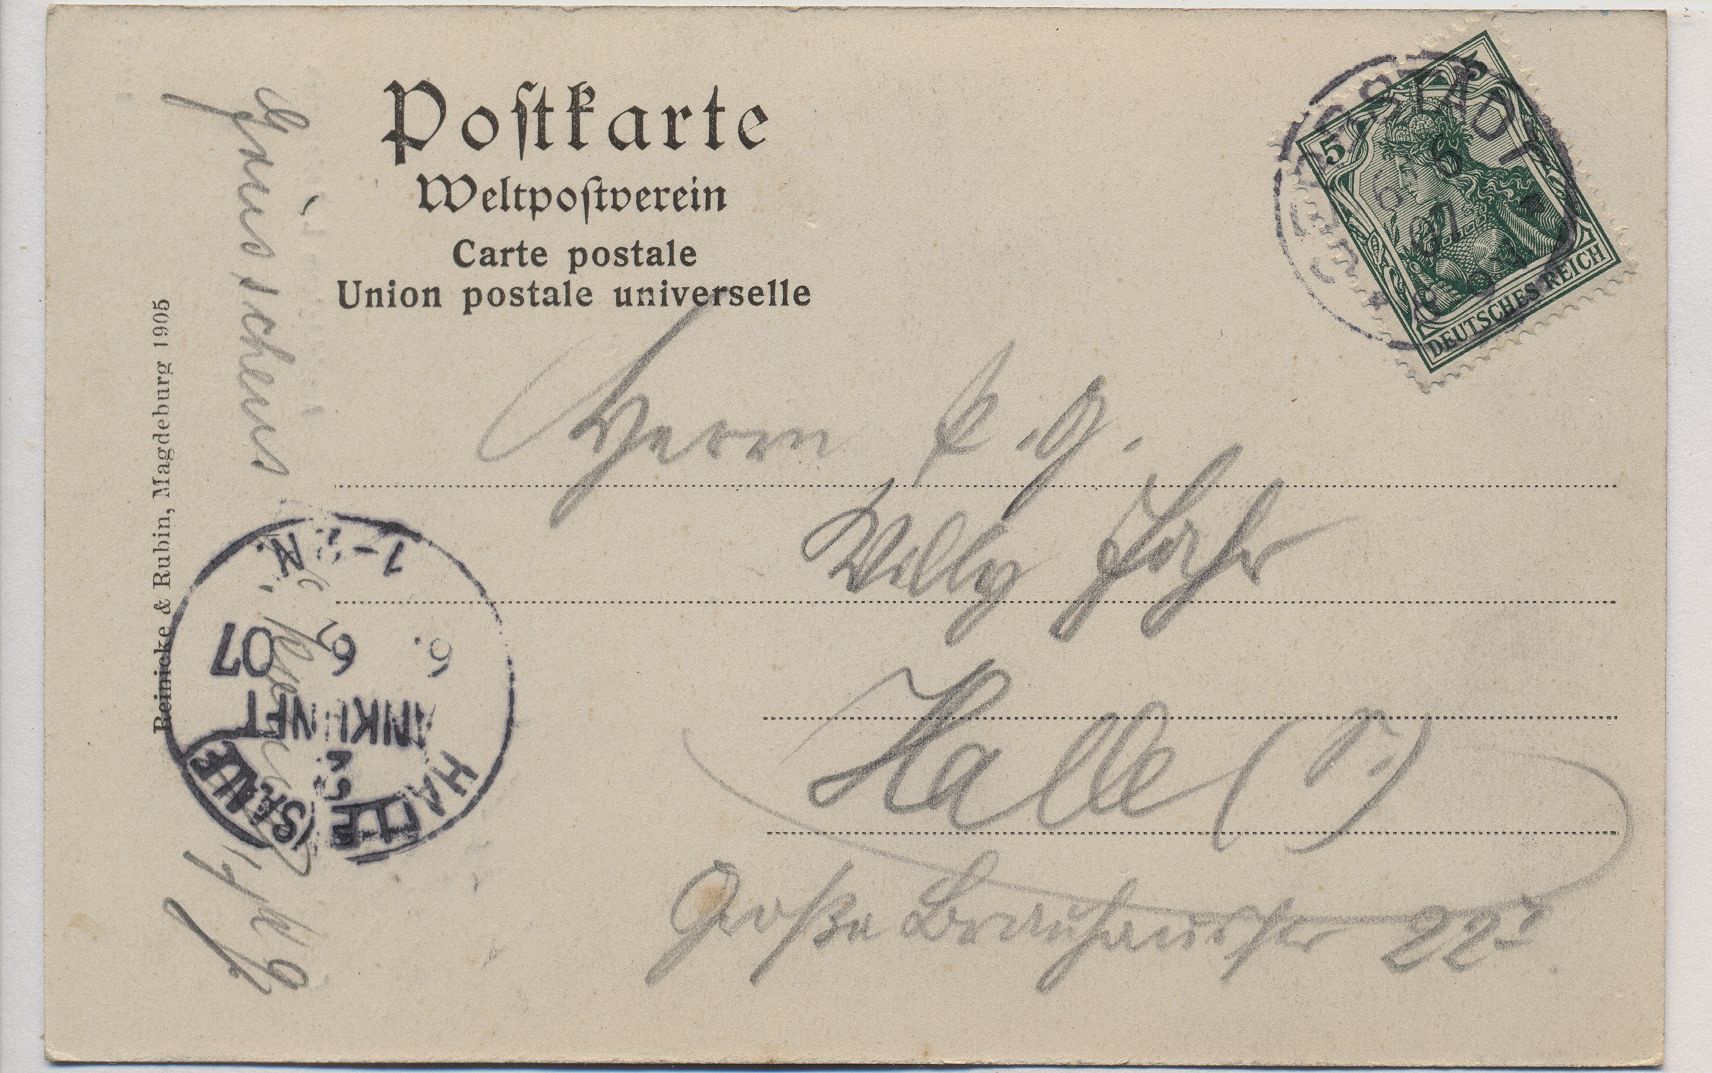 Postkarte
Weltpostverein
Carte postale
Union postale universelle
5 5
DEUTSCHES REICH
6 6 07
Herrn
Willy
Halle (S.)
Große Brauhausstr 22I
Reinicke & Rubin, Magdeburg 1905
HALLE (SAALE)
ANKUNFT
6. 6 07
1-2 N.